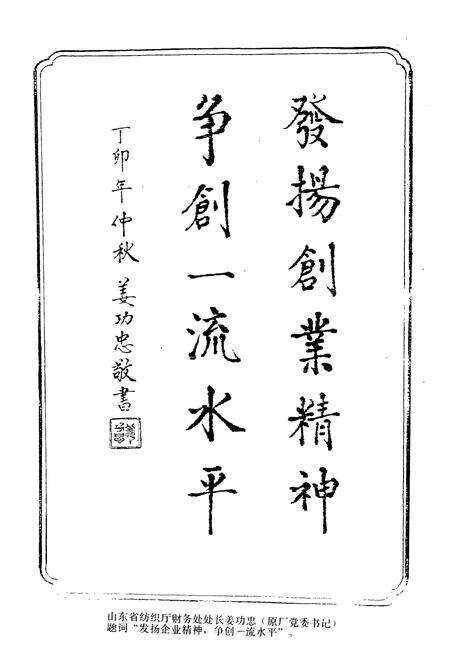 發揚創業精神
争創一流水平
丁卯年仲秋 姜功忠敬書
山东省纺织厅财务处处长姜功忠（原厂党委书记）
题词“发扬企业精神，争创一流水平”